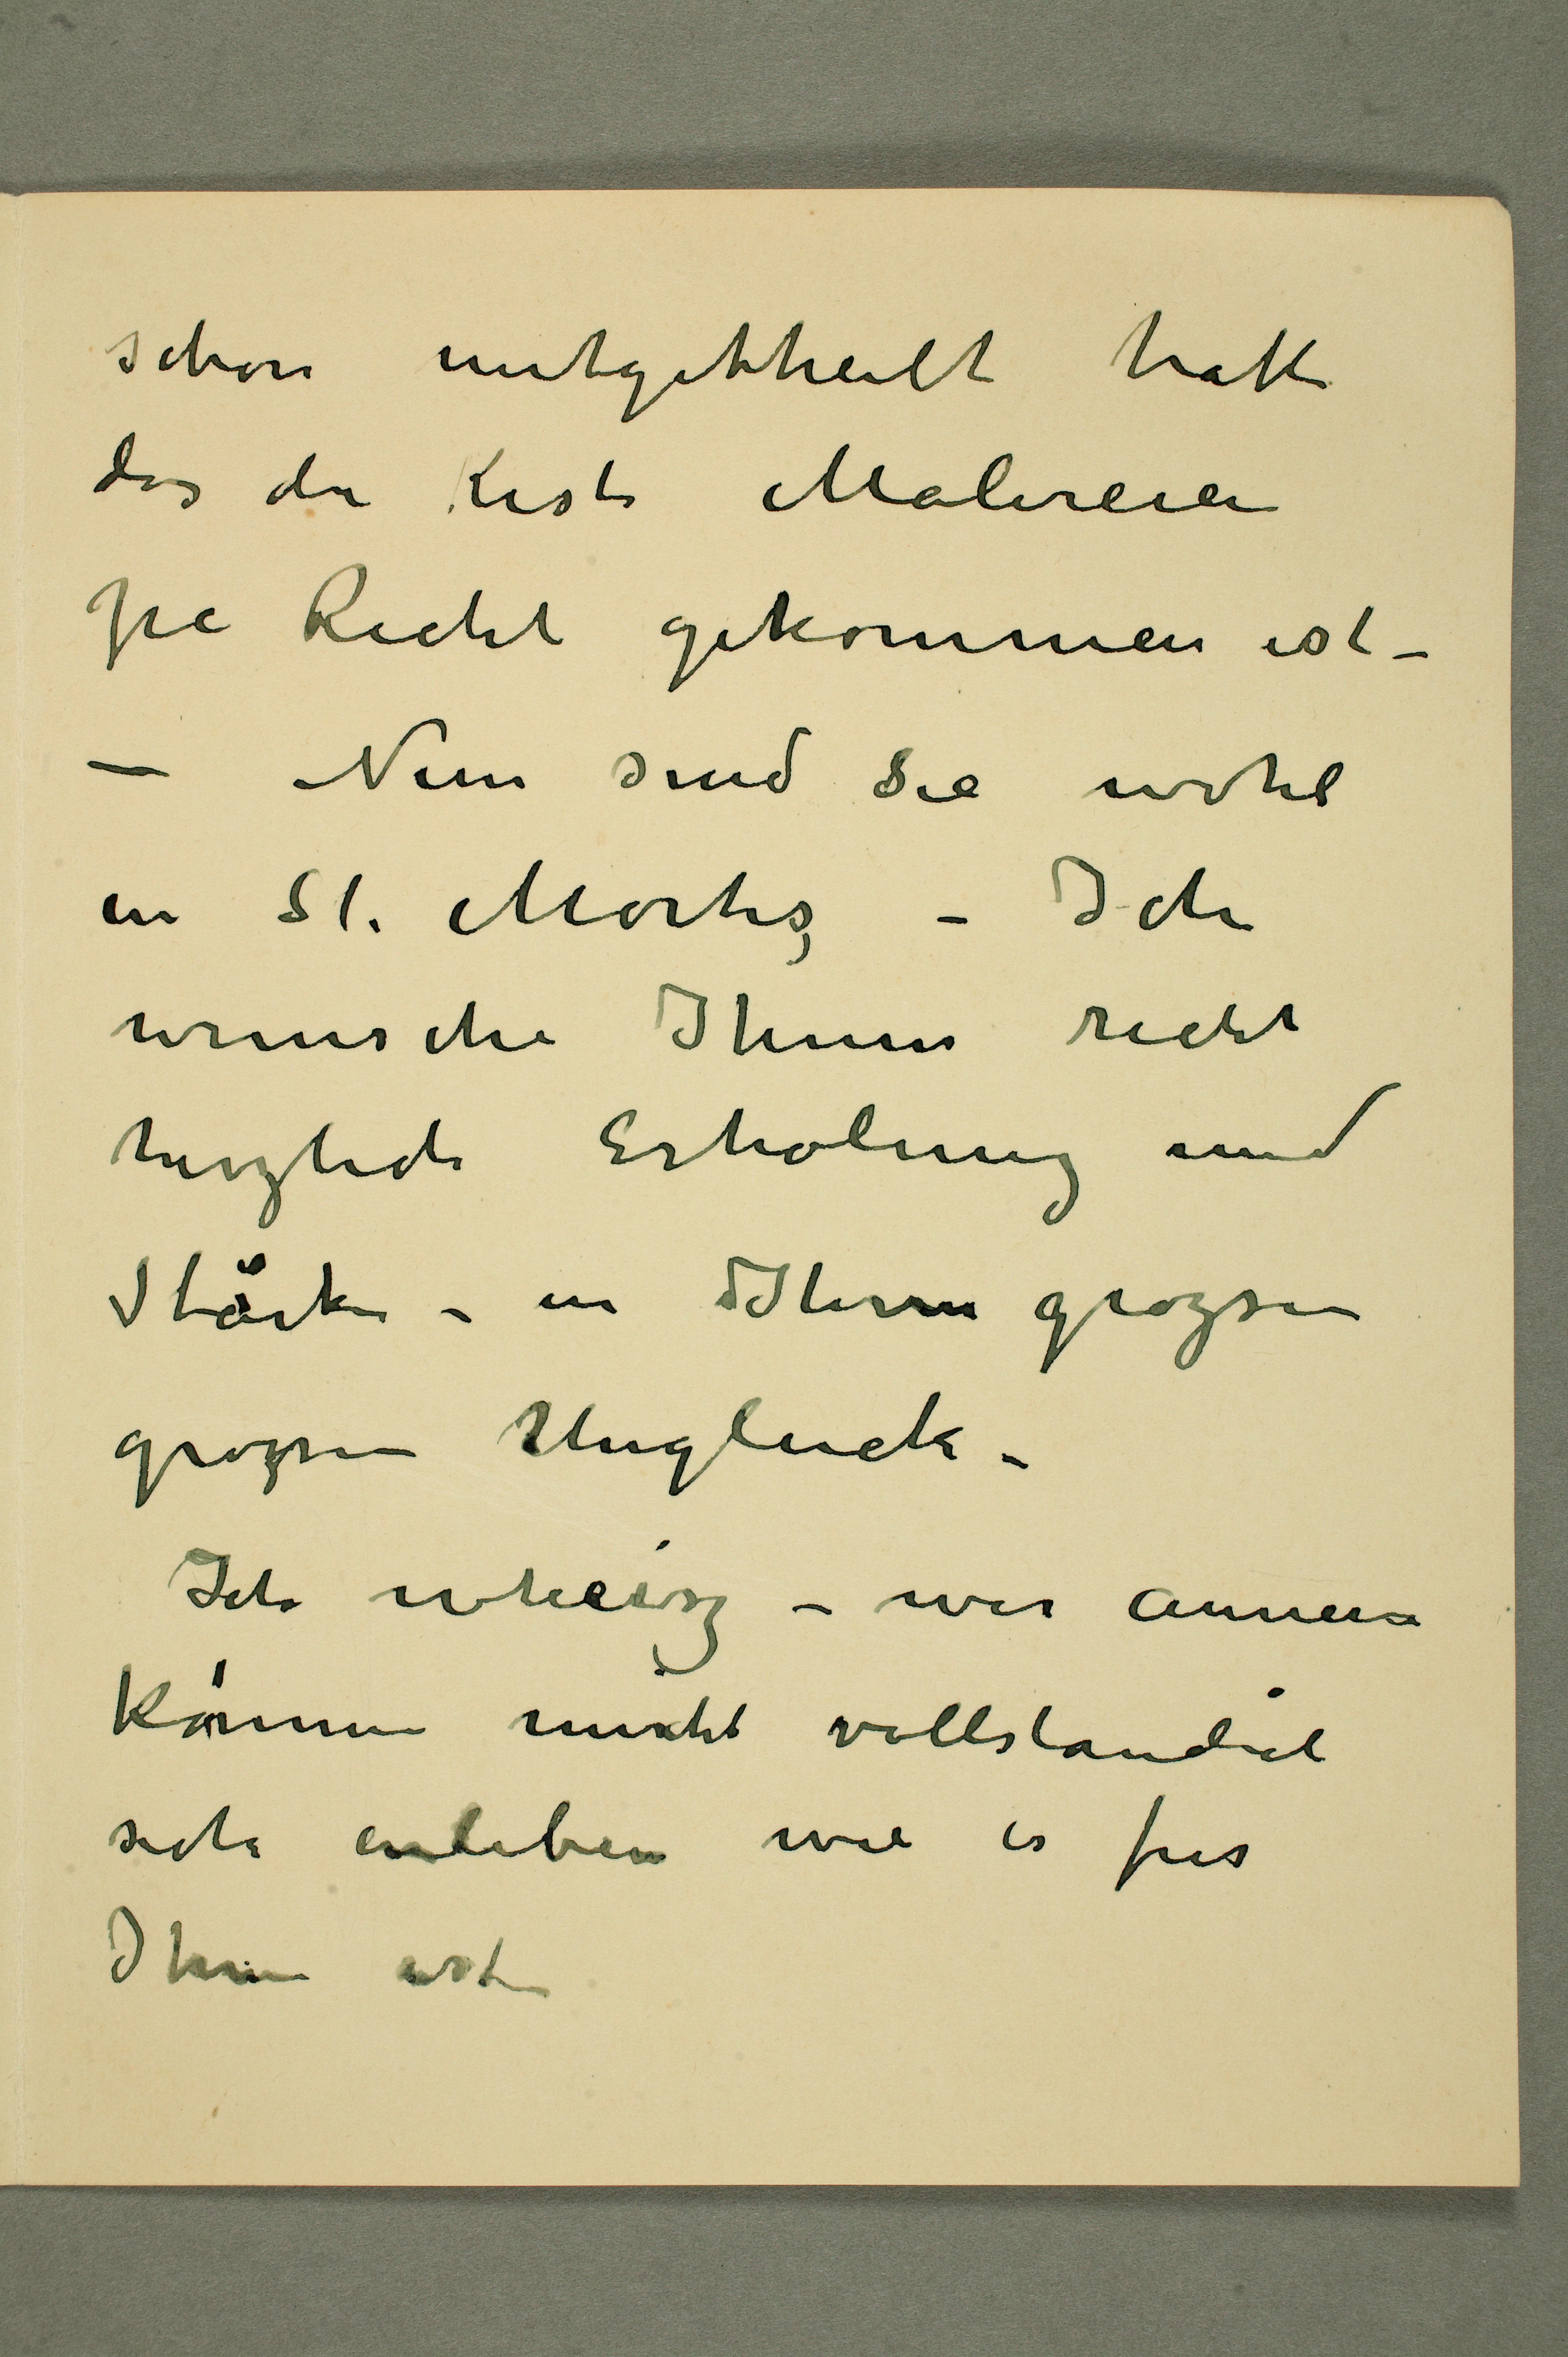 schon mitgetheilt hatte
das die Kiste Malereien
zu Recht gekommen ist –
— Nun sind Sie wohl
in St. Moritz – Ich
wunsche Ihnen recht
herzlich Erholung und
Stärke – in Ihrem grozsen
grozsen Ungluck –
Ich wheisz – wir annern
Können nicht vollstandid
sich einleben wie es fur
Ihnen ist